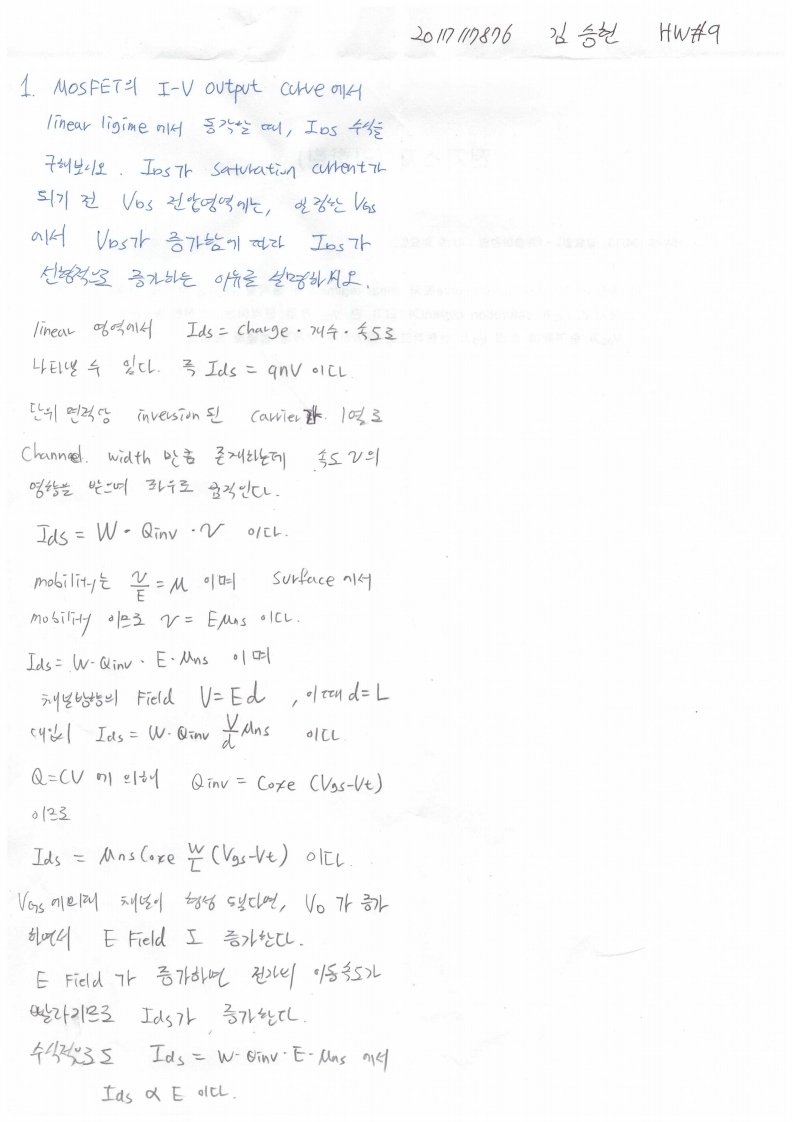 2017117876 김승현 HW#9
1. MOSFET의 I-V output curve에서
linear ligime 에서 동작할 때, IDS 수식을
구해보시오. IDS가 saturation current가
되기 전 VDS 전압영역에는, 일정한 VGS
에서 VDS가 증가함에 따라 IDS가
선형적으로 증가하는 이유를 설명하시오.
linear 영역에서 Ids = charge · 개수 · 속도로
나타낼 수 있다. 즉 Ids = qnV 이다
단위 면적당 inversion된 carrier가 1열로
Channel. width 만큼 존재하는데 속도 v의
영향을 받으며 좌우로 움직인다.
Ids = W · Qinv · v 이다.
mobility는 v/E = μ 이며 surface 에서
mobility 이므로 v = Eμns 이다.
Ids = W·Qinv · E·μns 이며
채널방향의 Field V=Ed , 이때 d=L
대입시 Ids = W·Qinv V/d μns 이다.
Q=CV 에 의해 Qinv = Coxe (Vgs-Vt)
이므로
Ids = μns Coxe W/L (Vgs-Vt) 이다.
VGS에 의해 채널이 형성 됐다면, VD 가 증가
하면서 E Field 도 증가한다.
E Field 가 증가하면 전자의 이동속도가
빨라지므로 Ids가 증가한다.
수식적으로도 Ids = W·Qinv·E·μns 에서
Ids ∝ E 이다.